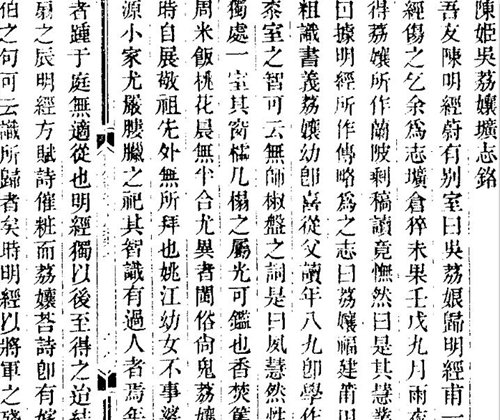 陳姬吳荔孃壙志銘
吾友陳明經蔚有別室曰吳荔娘歸明經甫一
經傷之乞余爲志壙倉猝未果壬戌九月雨夜
得荔孃所作蘭陂剩稿讀竟憮然曰是其慧
曰據明經所作傳略爲之志曰荔孃福建莆田
粗識書義荔孃幼卽喜從父讀年八九卽學作
泰室之智可云無師椒盤之詞是曰夙慧然性
獨處一室其窗櫺几榻之屬光可鑑也香焚
周米飯桃花晨無半合尤異者閩俗尙鬼荔孃
時自展敬祖先外無所拜也姚江幼女不事
源小家尤嚴膢臘之祀其智識有過人者焉年
者踵于庭無適從也明經獨以後至得之迨結
扇之辰明經方賦詩催粧而荔孃荅詩卽有嫁
伯之句可云識所歸者矣時明經以將軍之